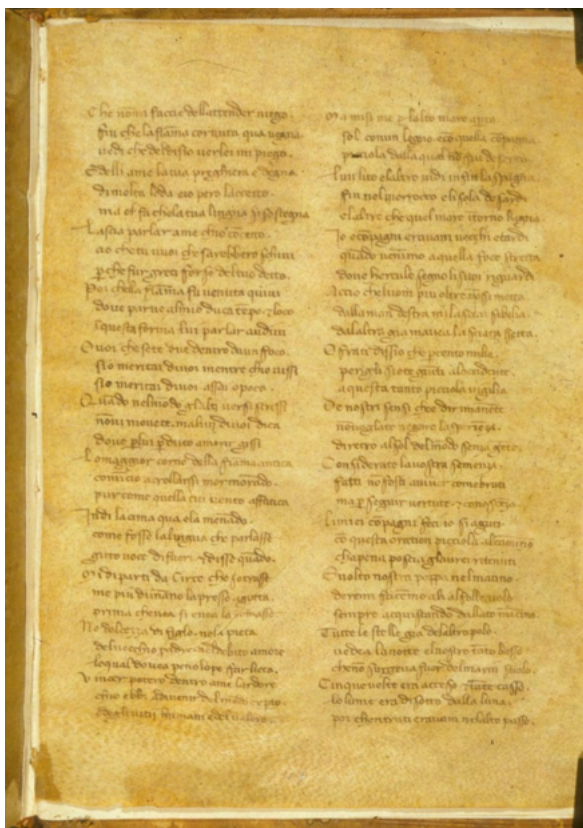 Che non a faccie dellattender niego
fin che la fiāma cornuta qua vegna
vedi che del disio verlei mi piego.
Ed elli ame la tua preghiera e degna
di molta loda eio pero laccetto
ma fa che la tua lingua si sostegna
Lascia parlar ame chio cōcetto
cio che tu vuoi che sarebbero schivi
pche fur greci forse del tuo detto.
Poi che la fiāma fu venuta quivi
dove parve al mio duca tēpo loco
questa forma lui parlar audivi
O voi che sete due dentro dun foco
sio meritai di voi mentre chio vissi
sio meritai di voi assai o poco.
Quādo nel mōdo glalti versi scrissi
nō vi movete. ma lun di voi dica
dove p lui pduto amorir gissi
Lo maggior corno della fiāma antica
comīcio a crollarsi mormorādo.
pur come quella cui vento affatica
Indi la cima qua ela menādo.
come fosse la lingua che parlasse
gitto voce di fuori disse quādo.
Mi diparti da Circe che sotrasse
me piu dunāno la presso gaeta.
prima che

Ne dolcezza di figlo. ne la pieta
del vecchio pidre. nel debito amore
lo qual dovea penolope far lieta.
Vincer potero dentro ame lardore
chio ebbi adivenir del mōdo expto.
degli vitii humani e del valore.
Ma misi me p lalto mare apto
sol con un legno. ecō quella cōpagna
picciola dalla qual nō fui deserto.
Lun lito elaltro vidi infin la spagna
fin nel morrocco e lisola de sardi
elaltre che quel mare itorno bagna
Io ecōpagni eravam vecchi etardi
quādo venimo aquella foce stretta
dove hercule segno li suoi riguardi
Accio che luom piu oltre nō si metta.
dalla man destra mi lasciai sibilia.
dalaltra gia mavea lasciata setta.
O frati dissio che p cento milia
perigli siete giuti aloccidente.
a questa tanto picciola vigilia
De nostri sensi che dir manēte
nō vogliate negare lasperieza.
diretro al sol del mōdo senza gēte.
Considerate la vostra semenza.
fatti no fosti aviver come bruti
ma p seguir vertute conoscenza
Li miei cōpagni fecio si aguti
cō questa oration picciola alcamino
chapena poscia glavrei ritenuti
E volto nostra poppa nel matino.
de remi facēmo ali al folle volo
sempre acquistando dal lato mācino.
Tutte le stelle gia delaltro polo.
vedea lanotte elnostro tāto basso
che nō surgeva fuor del marin suolo.
Cinque volte era acceso tāte casso.
lo lume era di sotto dalla luna.
poi chentrati eravam nelalto passo.